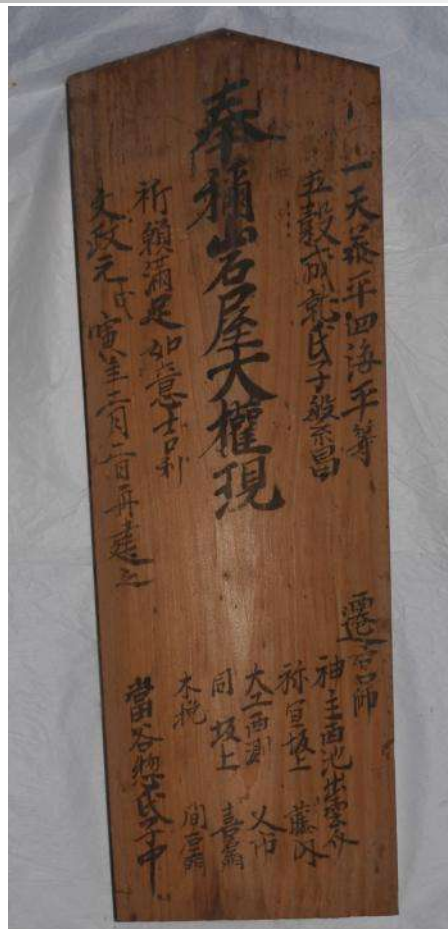 一天泰平四海平等
五穀成就氏子般昌
奉 岩屋大權現
祈願滿足如意吉利
文政元戊寅年二月二日再建之
遷宮師
神主西池出雲
祢宜坂上 藤
大工西 又
同 坂上 喜
木挽
當谷惣氏子中